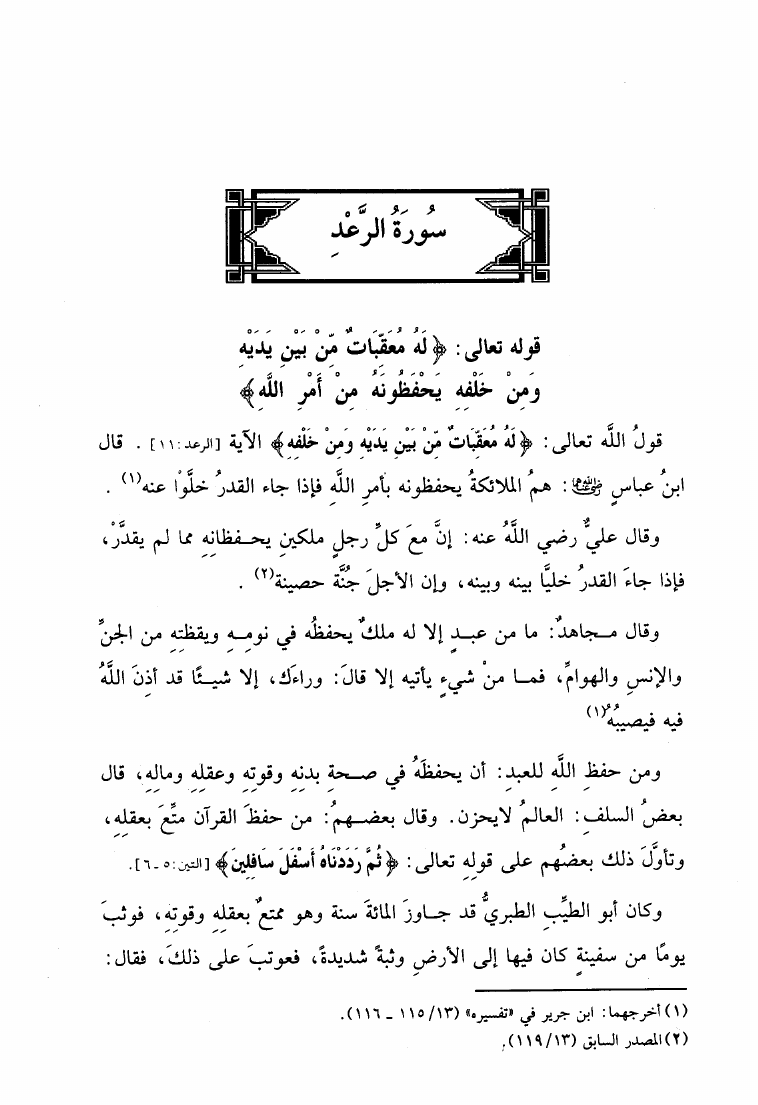 سُورَةُ الرَّعْدِ
قوله تعالى: ﴿لَهُ مُعَقِّبَاتٌ مِّنْ بَيْنِ يَدَيْهِ
وَمِنْ خَلْفِهِ يَحْفَظُونَهُ مِنْ أَمْرِ اللَّهِ﴾
قولُ اللَّه تعالى: ﴿لَهُ مُعَقِّبَاتٌ مِّنْ بَيْنِ يَدَيْهِ وَمِنْ خَلْفِهِ﴾ الآية [الرعد:١١] . قال
ابنُ عباسٍ رضي الله عنهما: همُ الملائكةُ يحفظونه بأمرِ اللَّهِ فإذا جاء القدرُ خلَّوْا عنه(١) .
وقال عليٌّ رضي اللَّهُ عنه: إنَّ معَ كلِّ رجلٍ ملكينِ يحـفظانِهِ مما لم يقدَّرْ،
فإذا جاءَ القدرُ خليَّا بينه وبينه، وإن الأجلَ جُنَّة حصينة(٢) .
وقال مـجاهدٌ: ما من عبـدٍ إلا له ملكٌ يحفظُه في نومِـهِ ويقظتِهِ من الجنِّ
والإنسِ والهوامِّ، فمـا منْ شيءٍ يأتيه إلا قالَ: وراءَك، إلا شيـئًا قد أذنَ اللَّهُ
فيه فيصيبُهُ(١)
ومن حفظِ اللَّهِ للعبدِ: أن يحفظَهُ في صـحةِ بدنِهِ وقوتِهِ وعقلِهِ ومالِهِ، قال
بعضُ السلفِ: العالمُ لايحزن. وقال بعضـهمُ: من حفظَ القرآن متِّعَ بعقلِهِ،
وتأوَّلَ ذلك بعضُهم على قولِهِ تعالى: ﴿ثُمَّ رَدَدْنَاهُ أَسْفَلَ سَافِلِينَ﴾ [التين:٥ـ٦].
وكان أبو الطيِّبِ الطبريُّ قد جـاوزَ المائةَ سنة وهو ممتعٌ بعقلِهِ وقوتِهِ، فوثبَ
يومًا من سفينةٍ كان فيها إلى الأرضِ وثبةً شديدةً، فعوتبَ على ذلكَ، فقال:
(١) أخرجهما: ابن جرير في «تفسيره» (١٣/١١٥ ـ ١١٦).
(٢) المصدر السابق (١٣/١١٩).